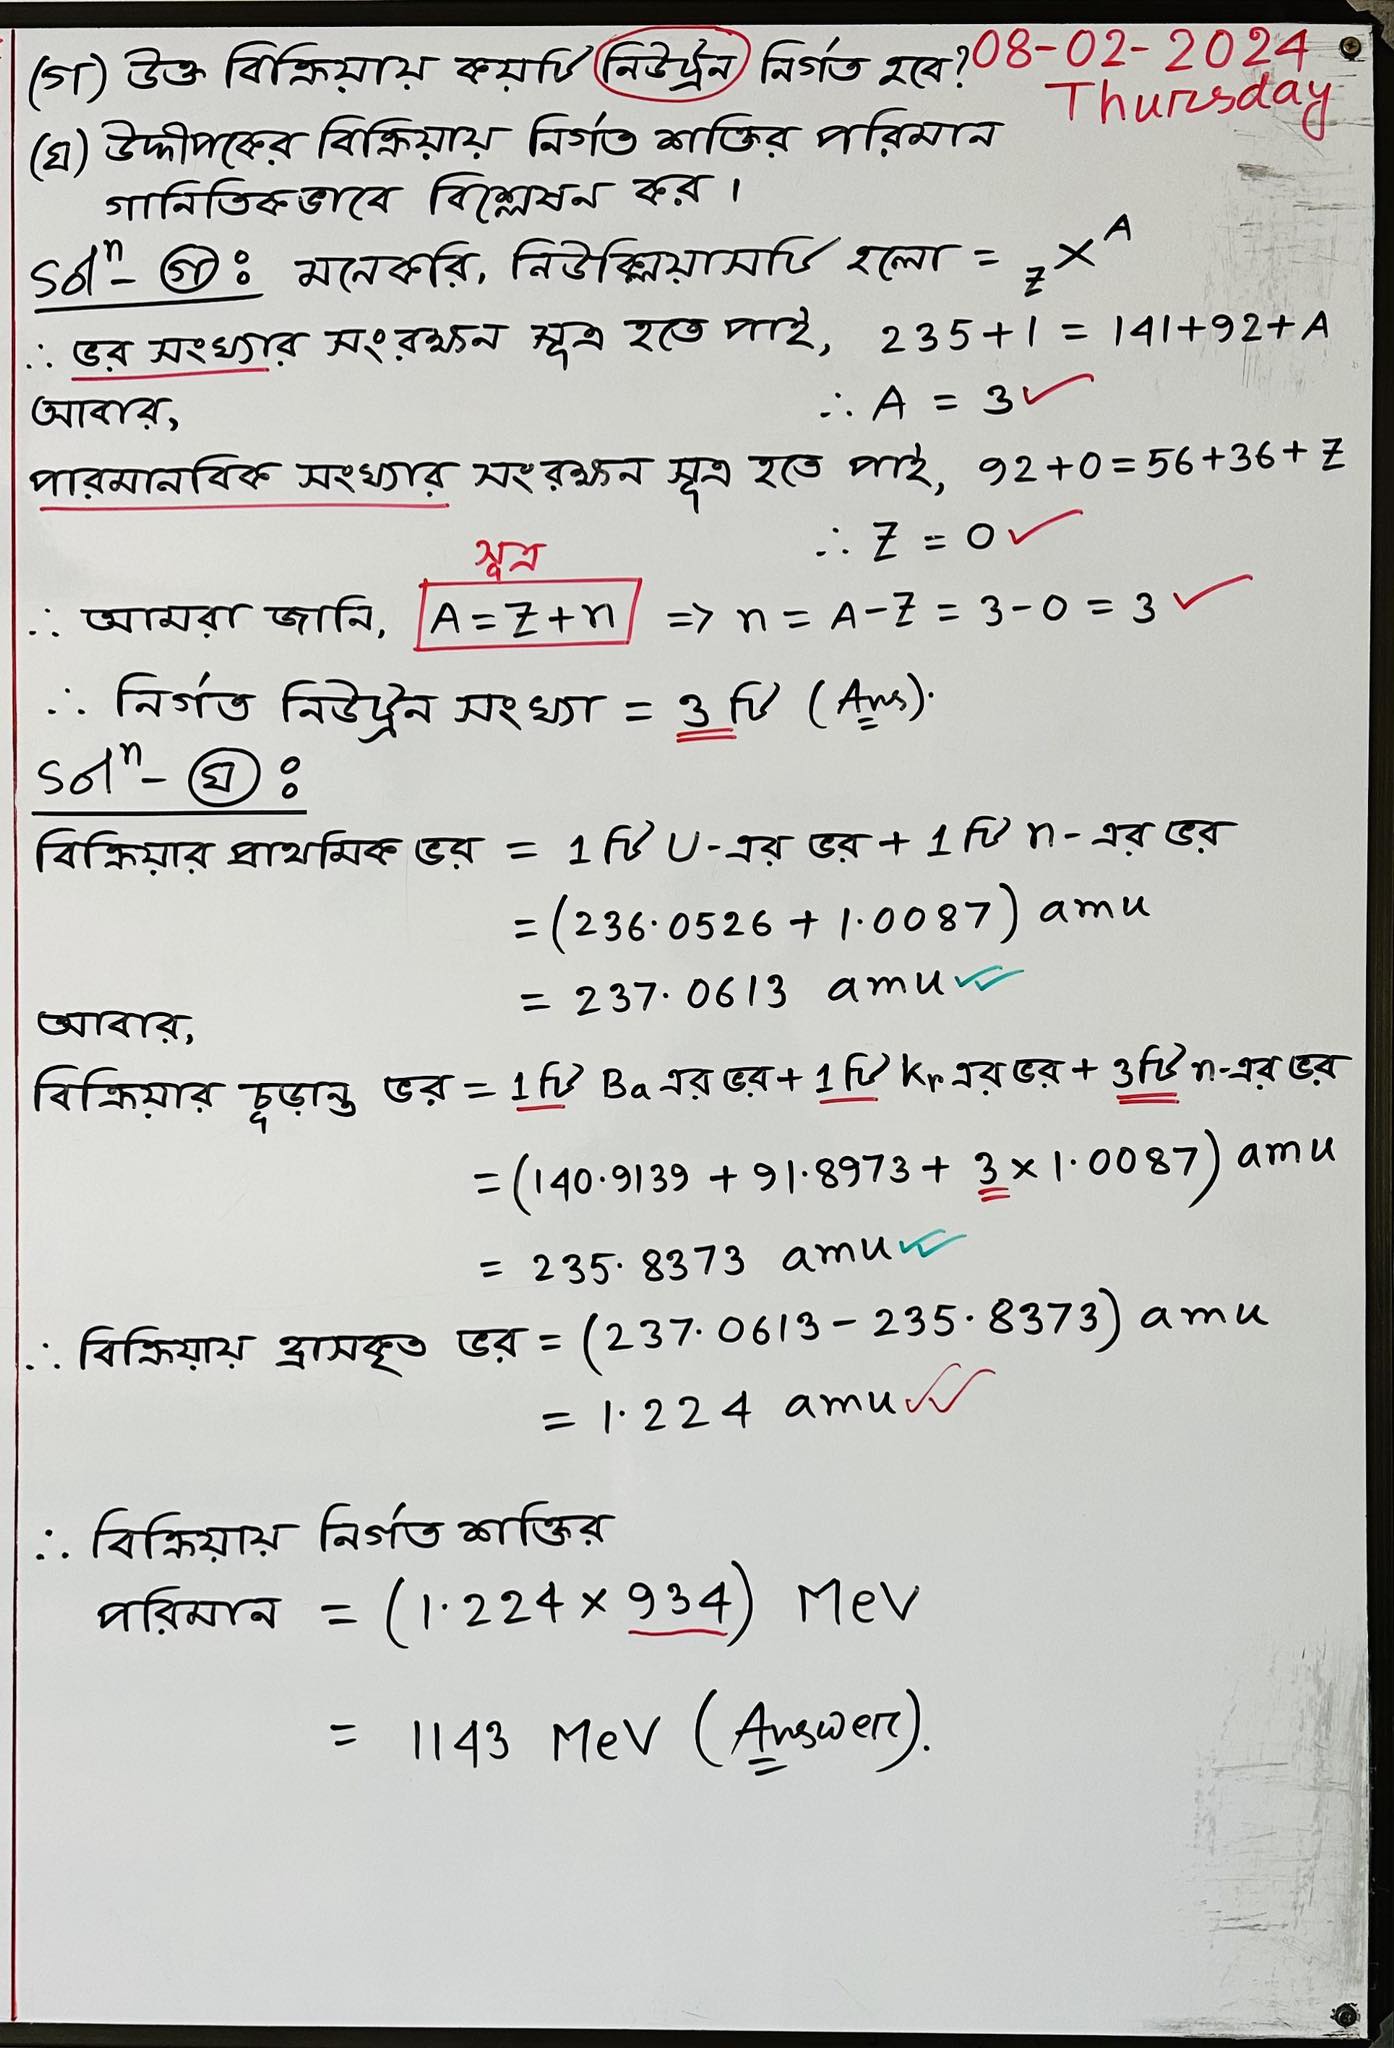 (গ) উক্ত বিক্রিয়ায় কয়টি নিউট্রন নির্গত হবে? 08-02-2024
Thursday
(ঘ) উদ্দীপকের বিক্রিয়ায় নির্গত শক্তির পরিমান
গানিতিকভাবে বিশ্লেষন কর।
Solⁿ- (গ) : মনেকরি, নিউক্লিয়াসটি হলো = zXᴬ
∴ ভর সংখ্যার সংরক্ষন সূত্র হতে পাই, 235+1 = 141+92+A
∴ A = 3 ✓
আবার,
পারমানবিক সংখ্যার সংরক্ষন সূত্র হতে পাই, 92+0=56+36+Z
∴ Z = 0 ✓
সূত্র
∴ আমরা জানি, A=Z+n => n = A-Z = 3-0 = 3 ✓
∴ নির্গত নিউট্রন সংখ্যা = 3 টি (Ans).
Solⁿ- (ঘ) :
বিক্রিয়ার প্রাথমিক ভর = 1 টি U-এর ভর + 1 টি n-এর ভর
= (236.0526 + 1.0087) amu
= 237.0613 amu ✓✓
আবার,
বিক্রিয়ার চূড়ান্ত ভর = 1টি Ba এর ভর + 1টি Kr এর ভর + 3টি n-এর ভর
= (140.9139 + 91.8973 + 3 × 1.0087) amu
= 235.8373 amu ✓✓
∴ বিক্রিয়ায় হ্রাসকৃত ভর = (237.0613 - 235.8373) amu
= 1.224 amu ✓✓
∴ বিক্রিয়ায় নির্গত শক্তির
পরিমান = (1.224 × 934) MeV
= 1143 MeV (Answer).